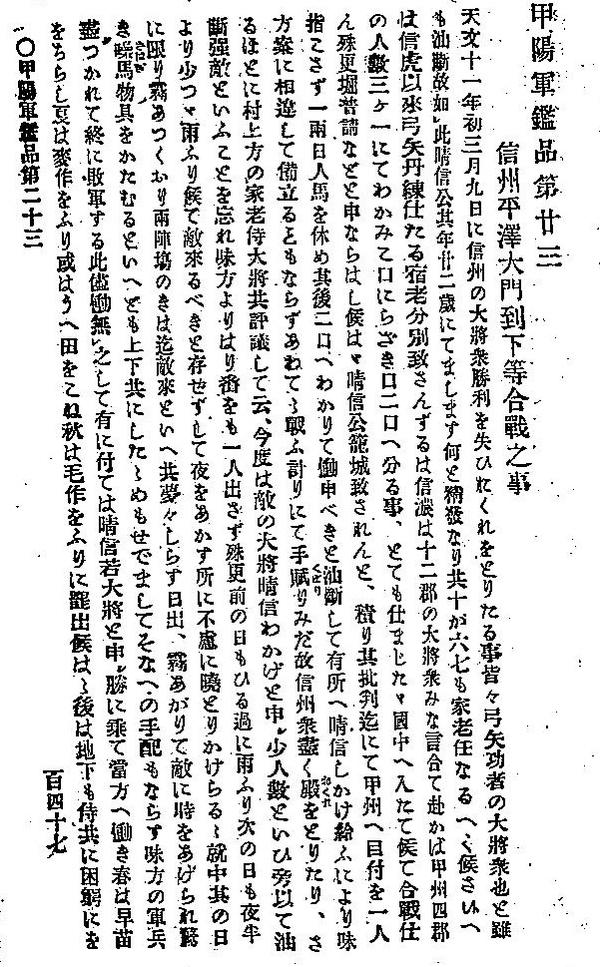 甲陽軍鑑品第廿三
信州平澤大門到下等合戰之事
天文十一年初三月九日に信州の大將衆勝利を失ひおくれをとりたる事皆々弓矢功者の大將衆也と雖
も油斷故如此晴信公其年廿二歲にてまします何と利發なり共十が六七も家老任なるべく候さいへ
は信虎以來弓矢丹練仕たる宿老分別致さんずるは信濃は十二郡の大將衆みな言合て赴かば甲州四郡
の人數三ケ一にてわかみて口にらざき口二口へ分る事、とても仕ましたゞ國中へ入たて候て合戰仕
ん殊更堀普請などと申ならはし候はゞ晴信公籠城致されんと、積り其批判迄にて甲州へ目付を一人
指こさず一兩日人馬を休め其後二口へわかりて働申べきと油斷して有所へ晴信しかけ給ふにより味
方案に相違して備立るともならずあわてゝ戰ふ計りにて手賦りみだ故信州衆盡く殿をとりたり、さ
るほどに村上方の家老侍大將共評議して云、今度は敵の大將晴信わかげと申少人數といひ旁以て油
斷强敵といふことを忘れ味方よりはり番をも一人出さず殊更前の日もひる過に雨ふり次の日も夜半
より少つゝ雨ふり候て敵來るべきと存せずして夜をあかす所に不慮に曉とりかけらるゝ就中其の日
に限り霧あつくかり兩陣塲のきは迄敵來といへ共夢々しらず日出、霧あがりて敵に時をあげられ驚
き噪馬物具をかたむるといへども上下共にしたゝめもせでましてそなへの手配もならず味方の軍兵
盡つかれて終に敗軍する此儘働無之して有に付ては晴信若大將と申勝に乘て當方へ働き春は早苗
をちらし夏は麥作をふり或はうへ田をこね秋は毛作をふりに罷出候はゝ後は地下も侍共に困窮にを
○甲陽軍鑑品第二十三
百四十七